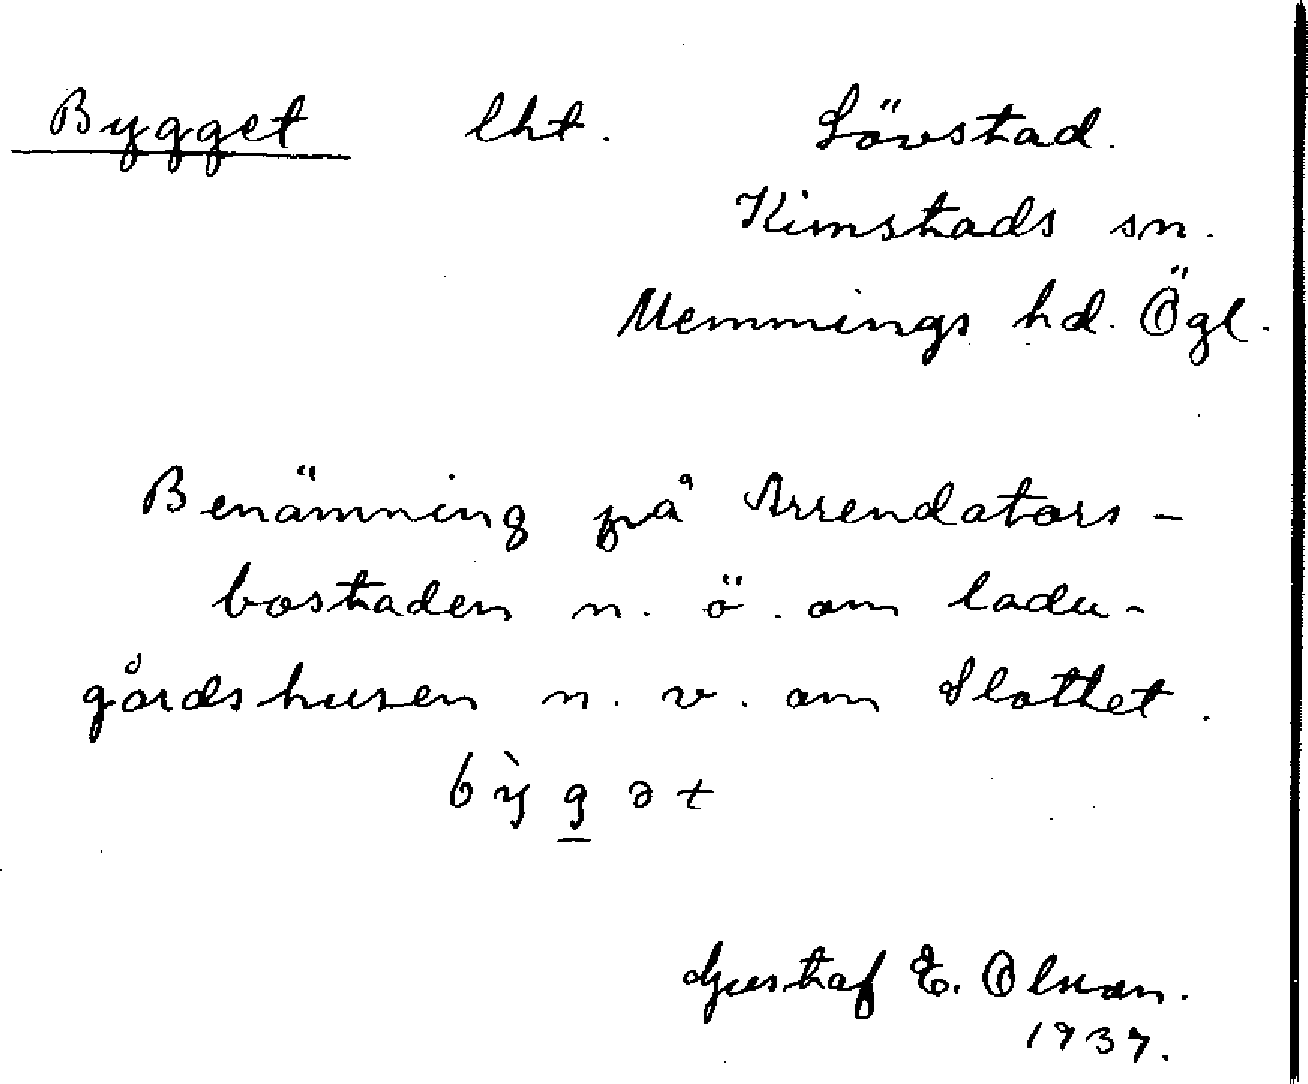 Bygget lht. Lövstad.
Kimstads sn.
Memmings hd. Ögl.
Benämning på Arrendators-
bostaden n. ö. om ladu-
gårdshusen n. v. om Slottet.
bỳgət
Gustaf E. Olsson.
1937.